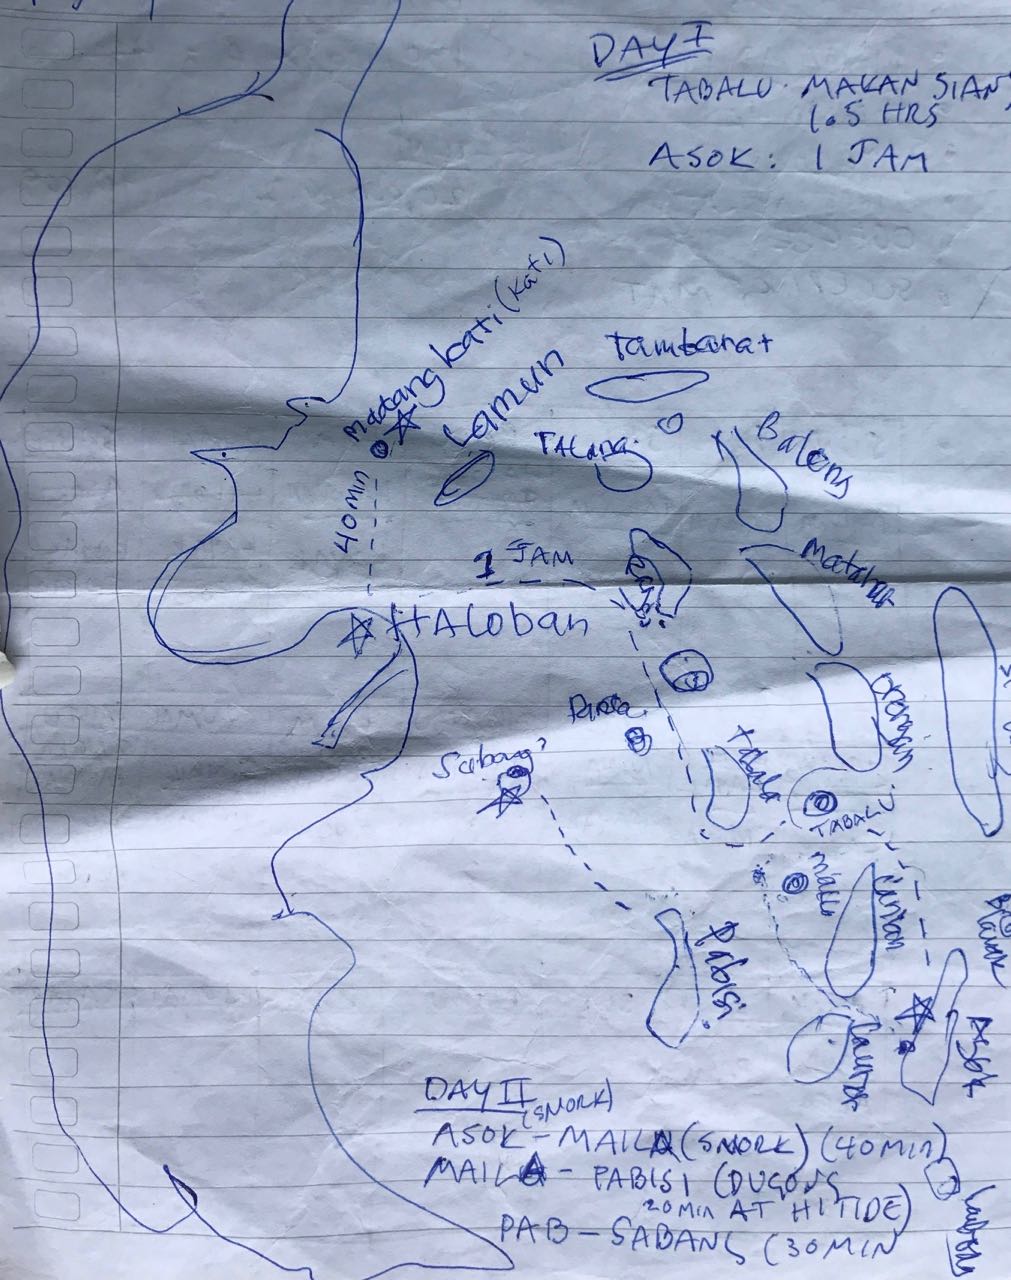 DAY I
TABALU. MAKAN SIANG
1.5 HRS
ASOK: 1 JAM
Matang kati (kati)
Lamun
Tambarat
TALANA
Baleng
40 min
1 JAM
Matahar
HALOBAN
Panta
Sabang?
Tabala
TABALU.
Mailu
Lintan
Pabisi
Asok
DAY II
(SNORK)
ASOK - MAILA (SNORK) (40 MIN)
MAILA - PABISI (DUGONG
20 MIN AT HI TIDE)
PAB - SABANG (30 MIN